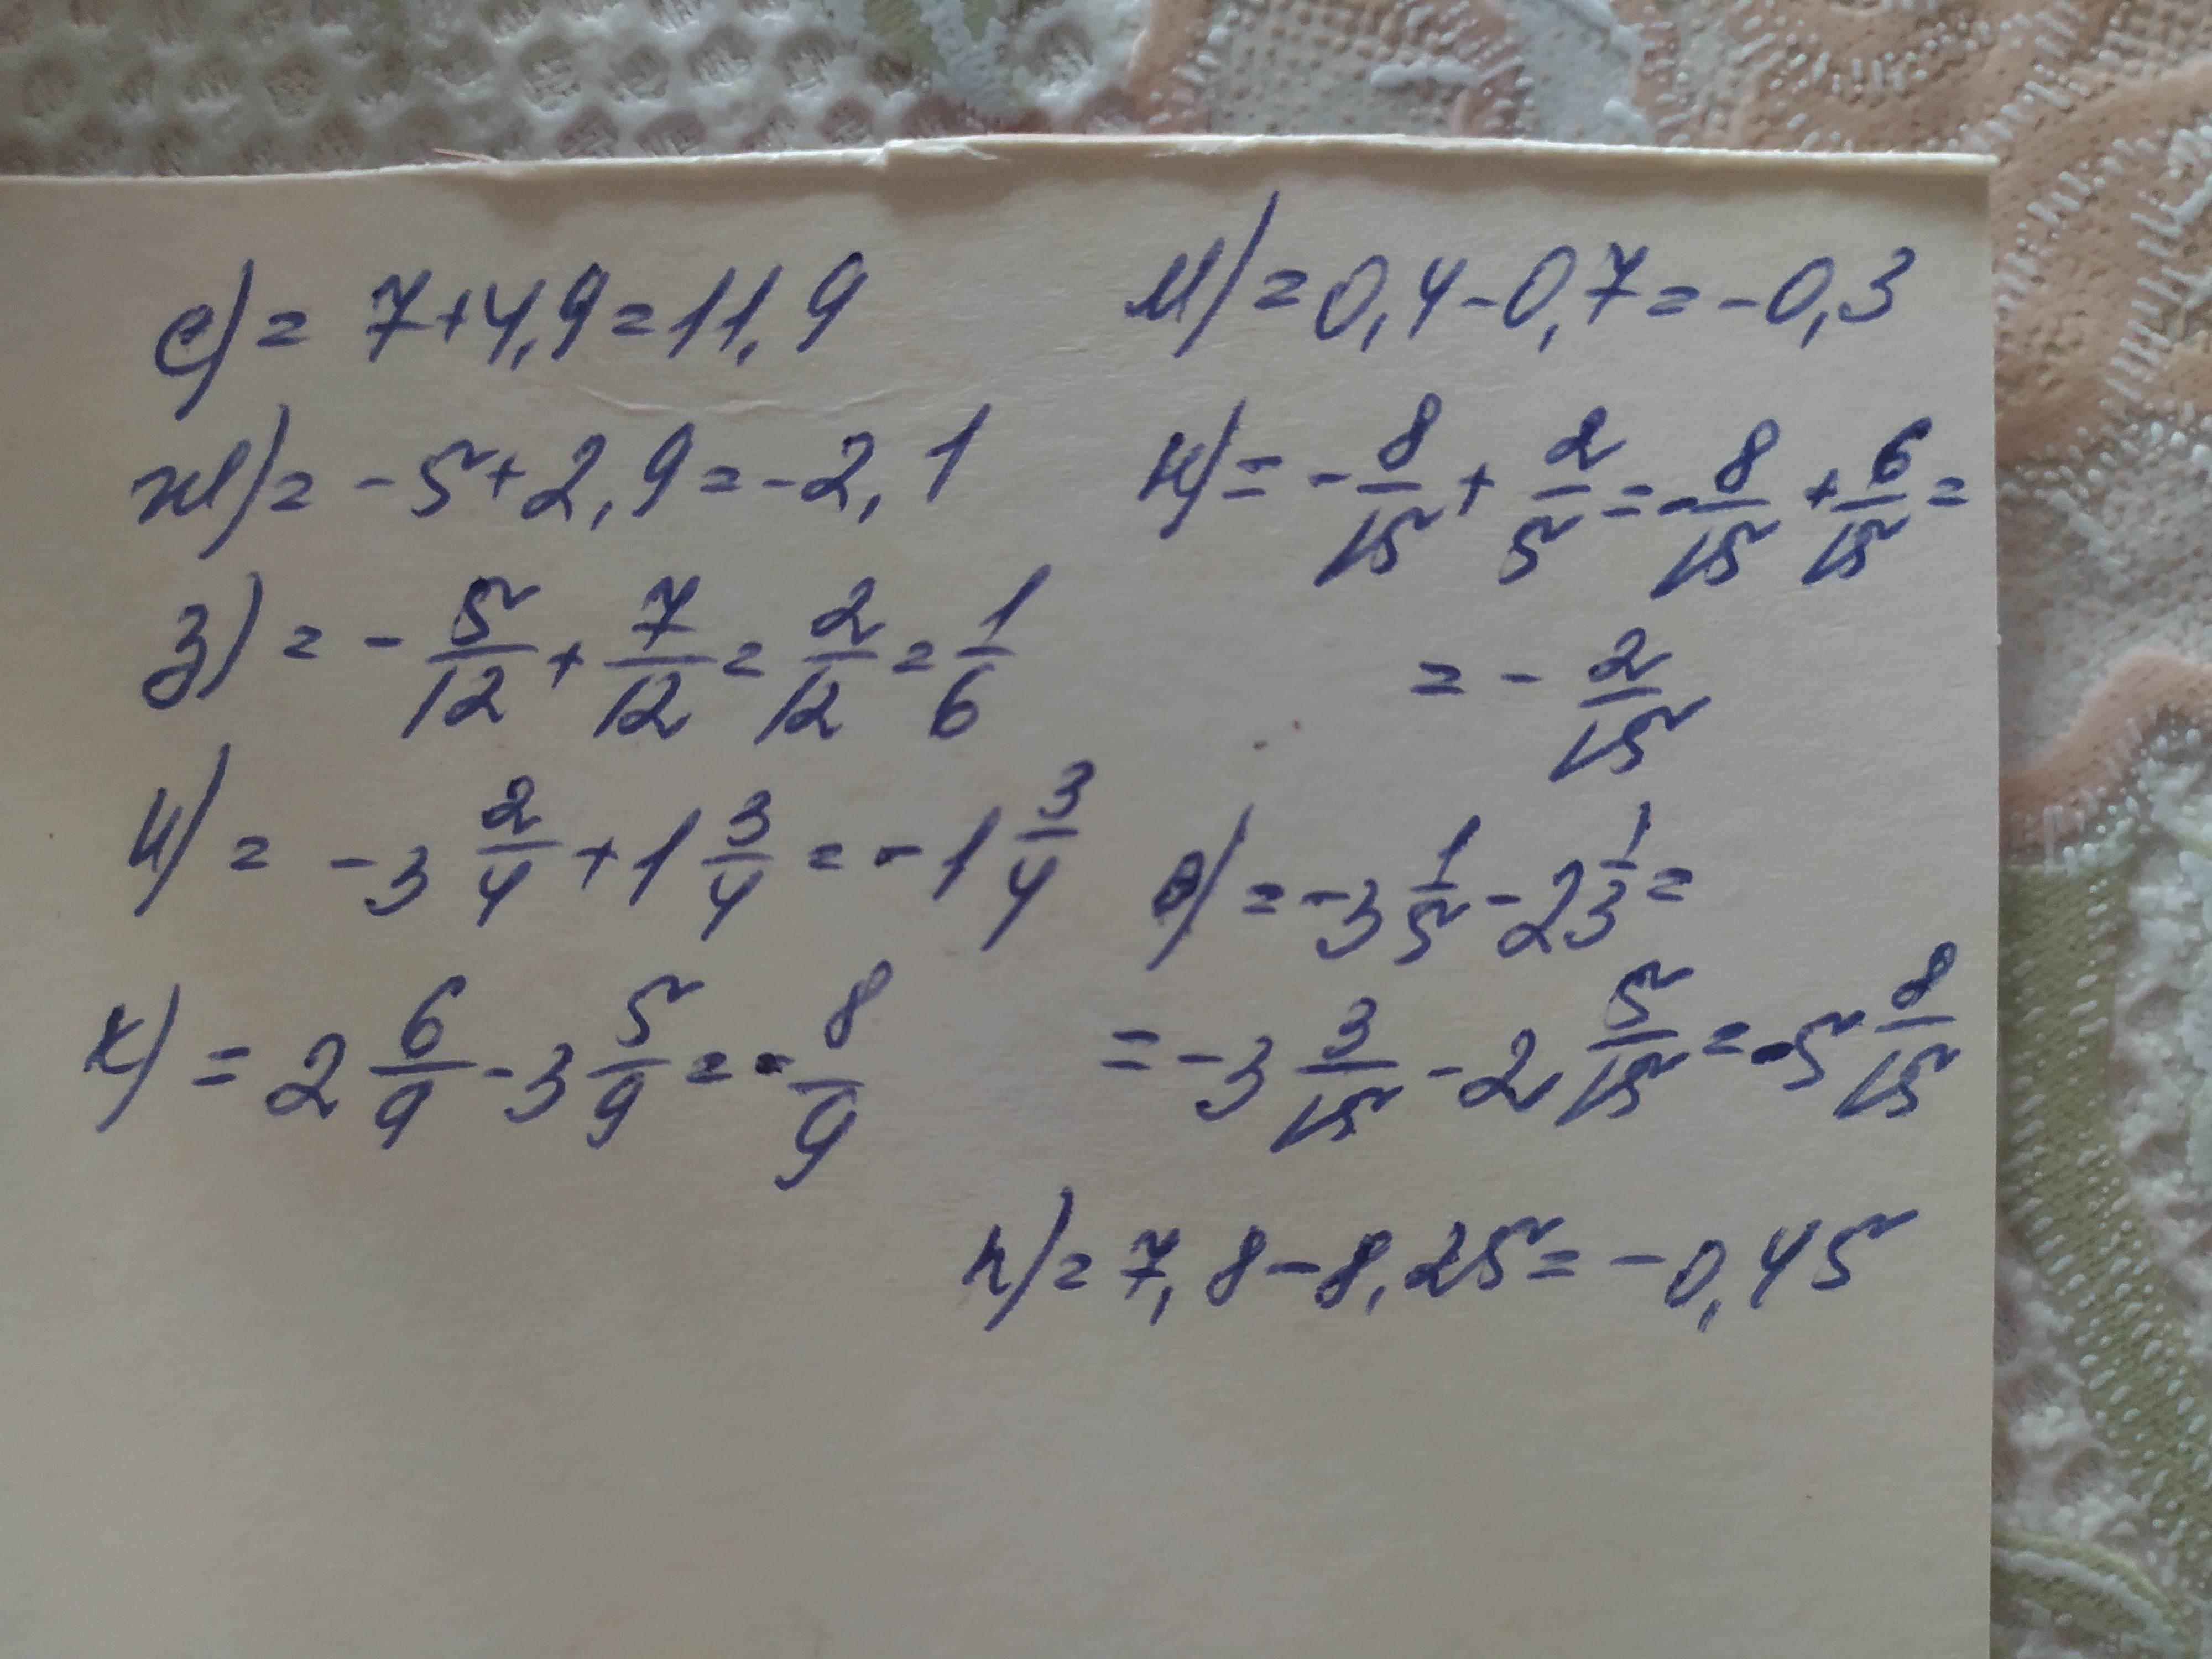 е) = 7+4,9=11,9
ж) = -5+2,9=-2,1
з) = - 5/12 + 7/12 = 2/12 = 1/6
и) = -3 2/4 + 1 3/4 = -1 3/4
к) = 2 6/9 - 3 5/9 = - 8/9
м) = 0,4-0,7=-0,3
н) = - 8/15 + 2/5 = - 8/15 + 6/15 =
= - 2/15
о) = -3 1/5 - 2 1/3 =
= -3 3/15 - 2 5/15 = -5 8/15
п) = 7,8-8,25=-0,45